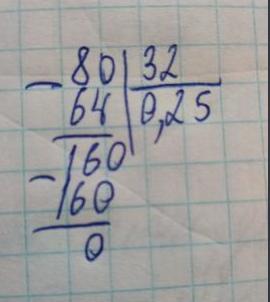 - 80 | 32
64 | 0,25
- 160
160
0